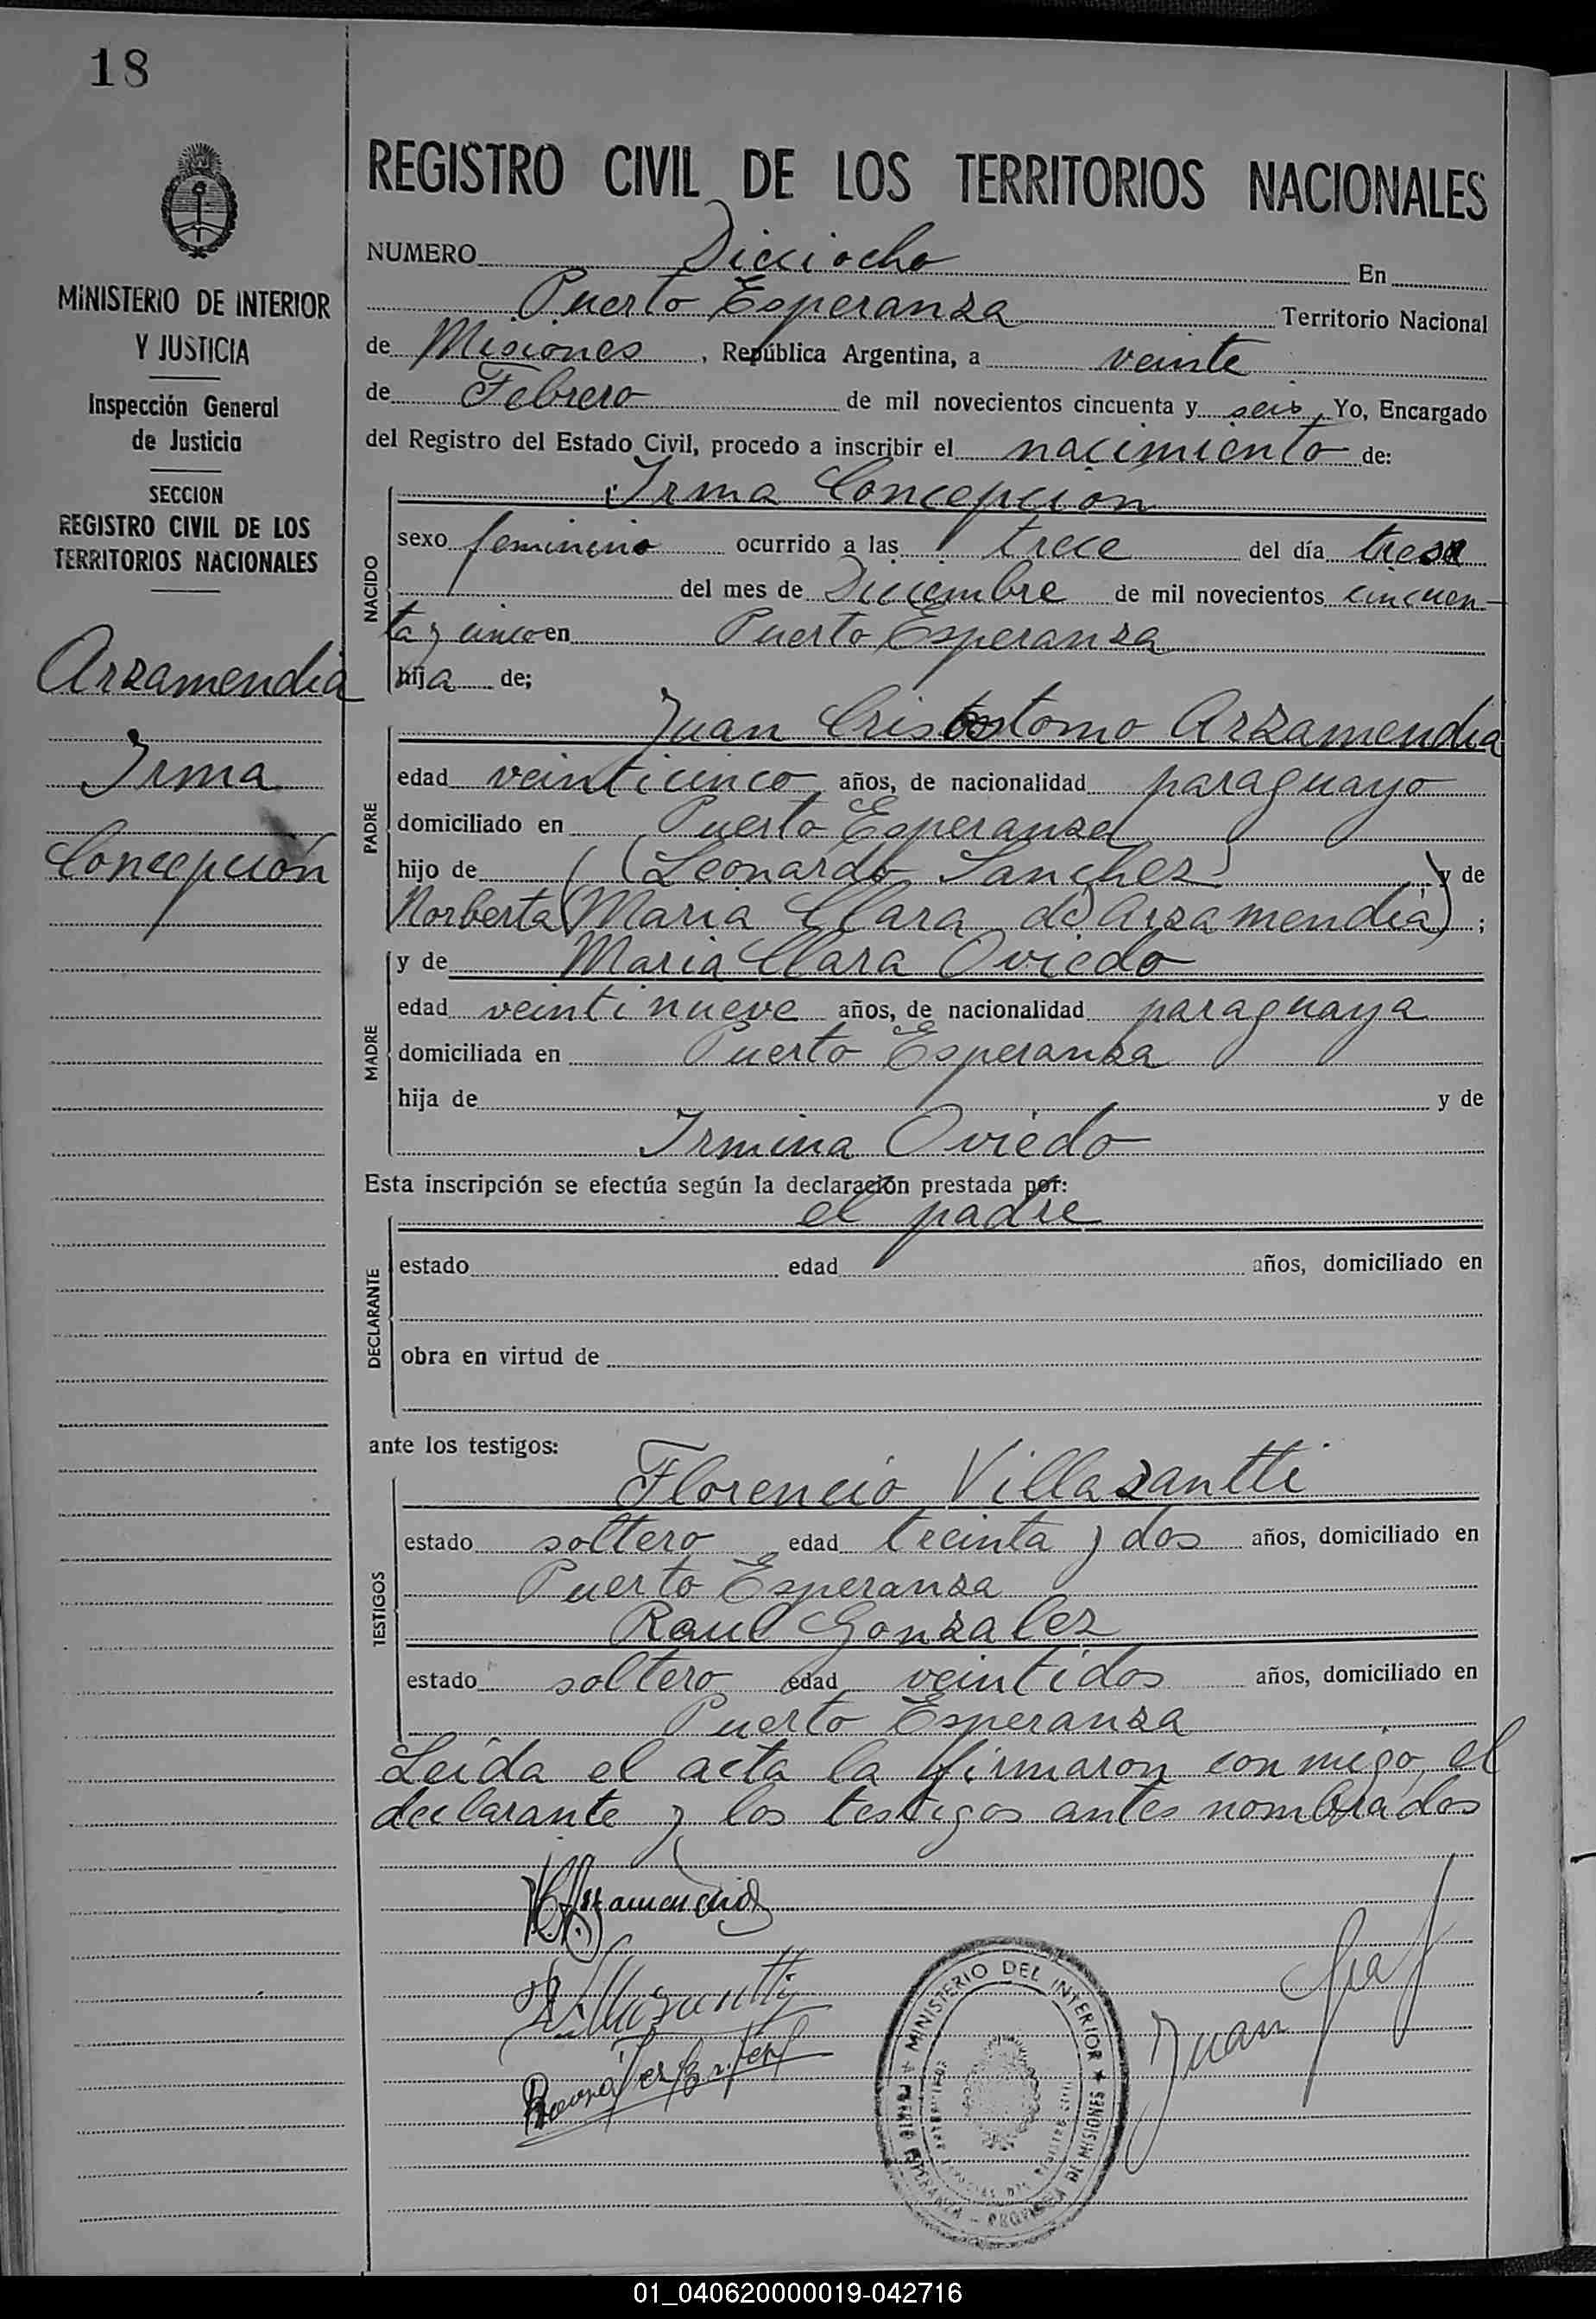 18
MINISTERIO DE INTERIOR
Y JUSTICIA
Inspección General
de Justicia
SECCION
REGISTRO CIVIL DE LOS
TERRITORIOS NACIONALES
Arzamendia
Irma
Concepción
REGISTRO CIVIL DE LOS TERRITORIOS NACIONALES
NUMERO Dieciocho En
Puerto Esperanza Territorio Nacional
de Misiones, República Argentina, a veinte
de Febrero de mil novecientos cincuenta y seis, Yo, Encargado
del Registro del Estado Civil, procedo a inscribir el nacimiento de:
Irma Concepcion
NACIDO
sexo femenino ocurrido a las trece del día tres
del mes de Diciembre de mil novecientos cincuen-
ta y cinco en Puerto Esperanza
hija de;
Juan Arzamendia
PADRE
edad veinticinco años, de nacionalidad paraguayo
domiciliado en Puerto Esperanza
hijo de ((Leonardo Sanchez) y de
Norberta (Maria Clara de) Arzamendia) ;
y de Maria Clara Oviedo
MADRE
edad veintinueve años, de nacionalidad paraguaya
domiciliada en Puerto Esperanza
hija de y de
Irmina Oviedo
Esta inscripción se efectúa según la declaración prestada por:
el padre
DECLARANTE
estado edad años, domiciliado en
obra en virtud de
ante los testigos:
Florencio Villazantti
TESTIGOS
estado soltero edad treinta y dos años, domiciliado en
Puerto Esperanza
Raul Gonzalez
estado soltero edad veintidos años, domiciliado en
Puerto Esperanza
Leída el acta la firmaron conmigo, el
declarante y los testigos antes nombrados
Arzamendia
Villazantti
Juan
MINISTERIO DEL INTERIOR ★
PUERTO ESPERANZA - PROVINCIA DE MISIONES
01_040620000019-042716